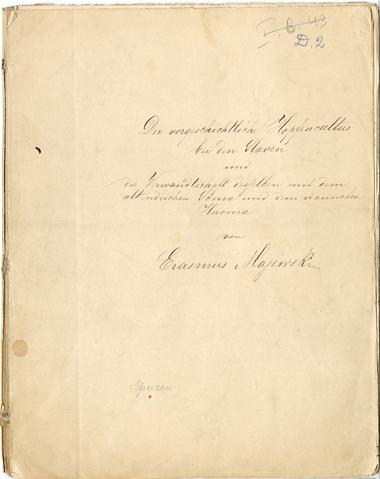 I. B. 43
D. 2
Der vorgeschichtlich Hopfencultus
bei den Slaven
und
die Verwandtschaft desselben mit dem
altindischen Soma und dem iranischen
Haoma
von
Erasmus Majewski